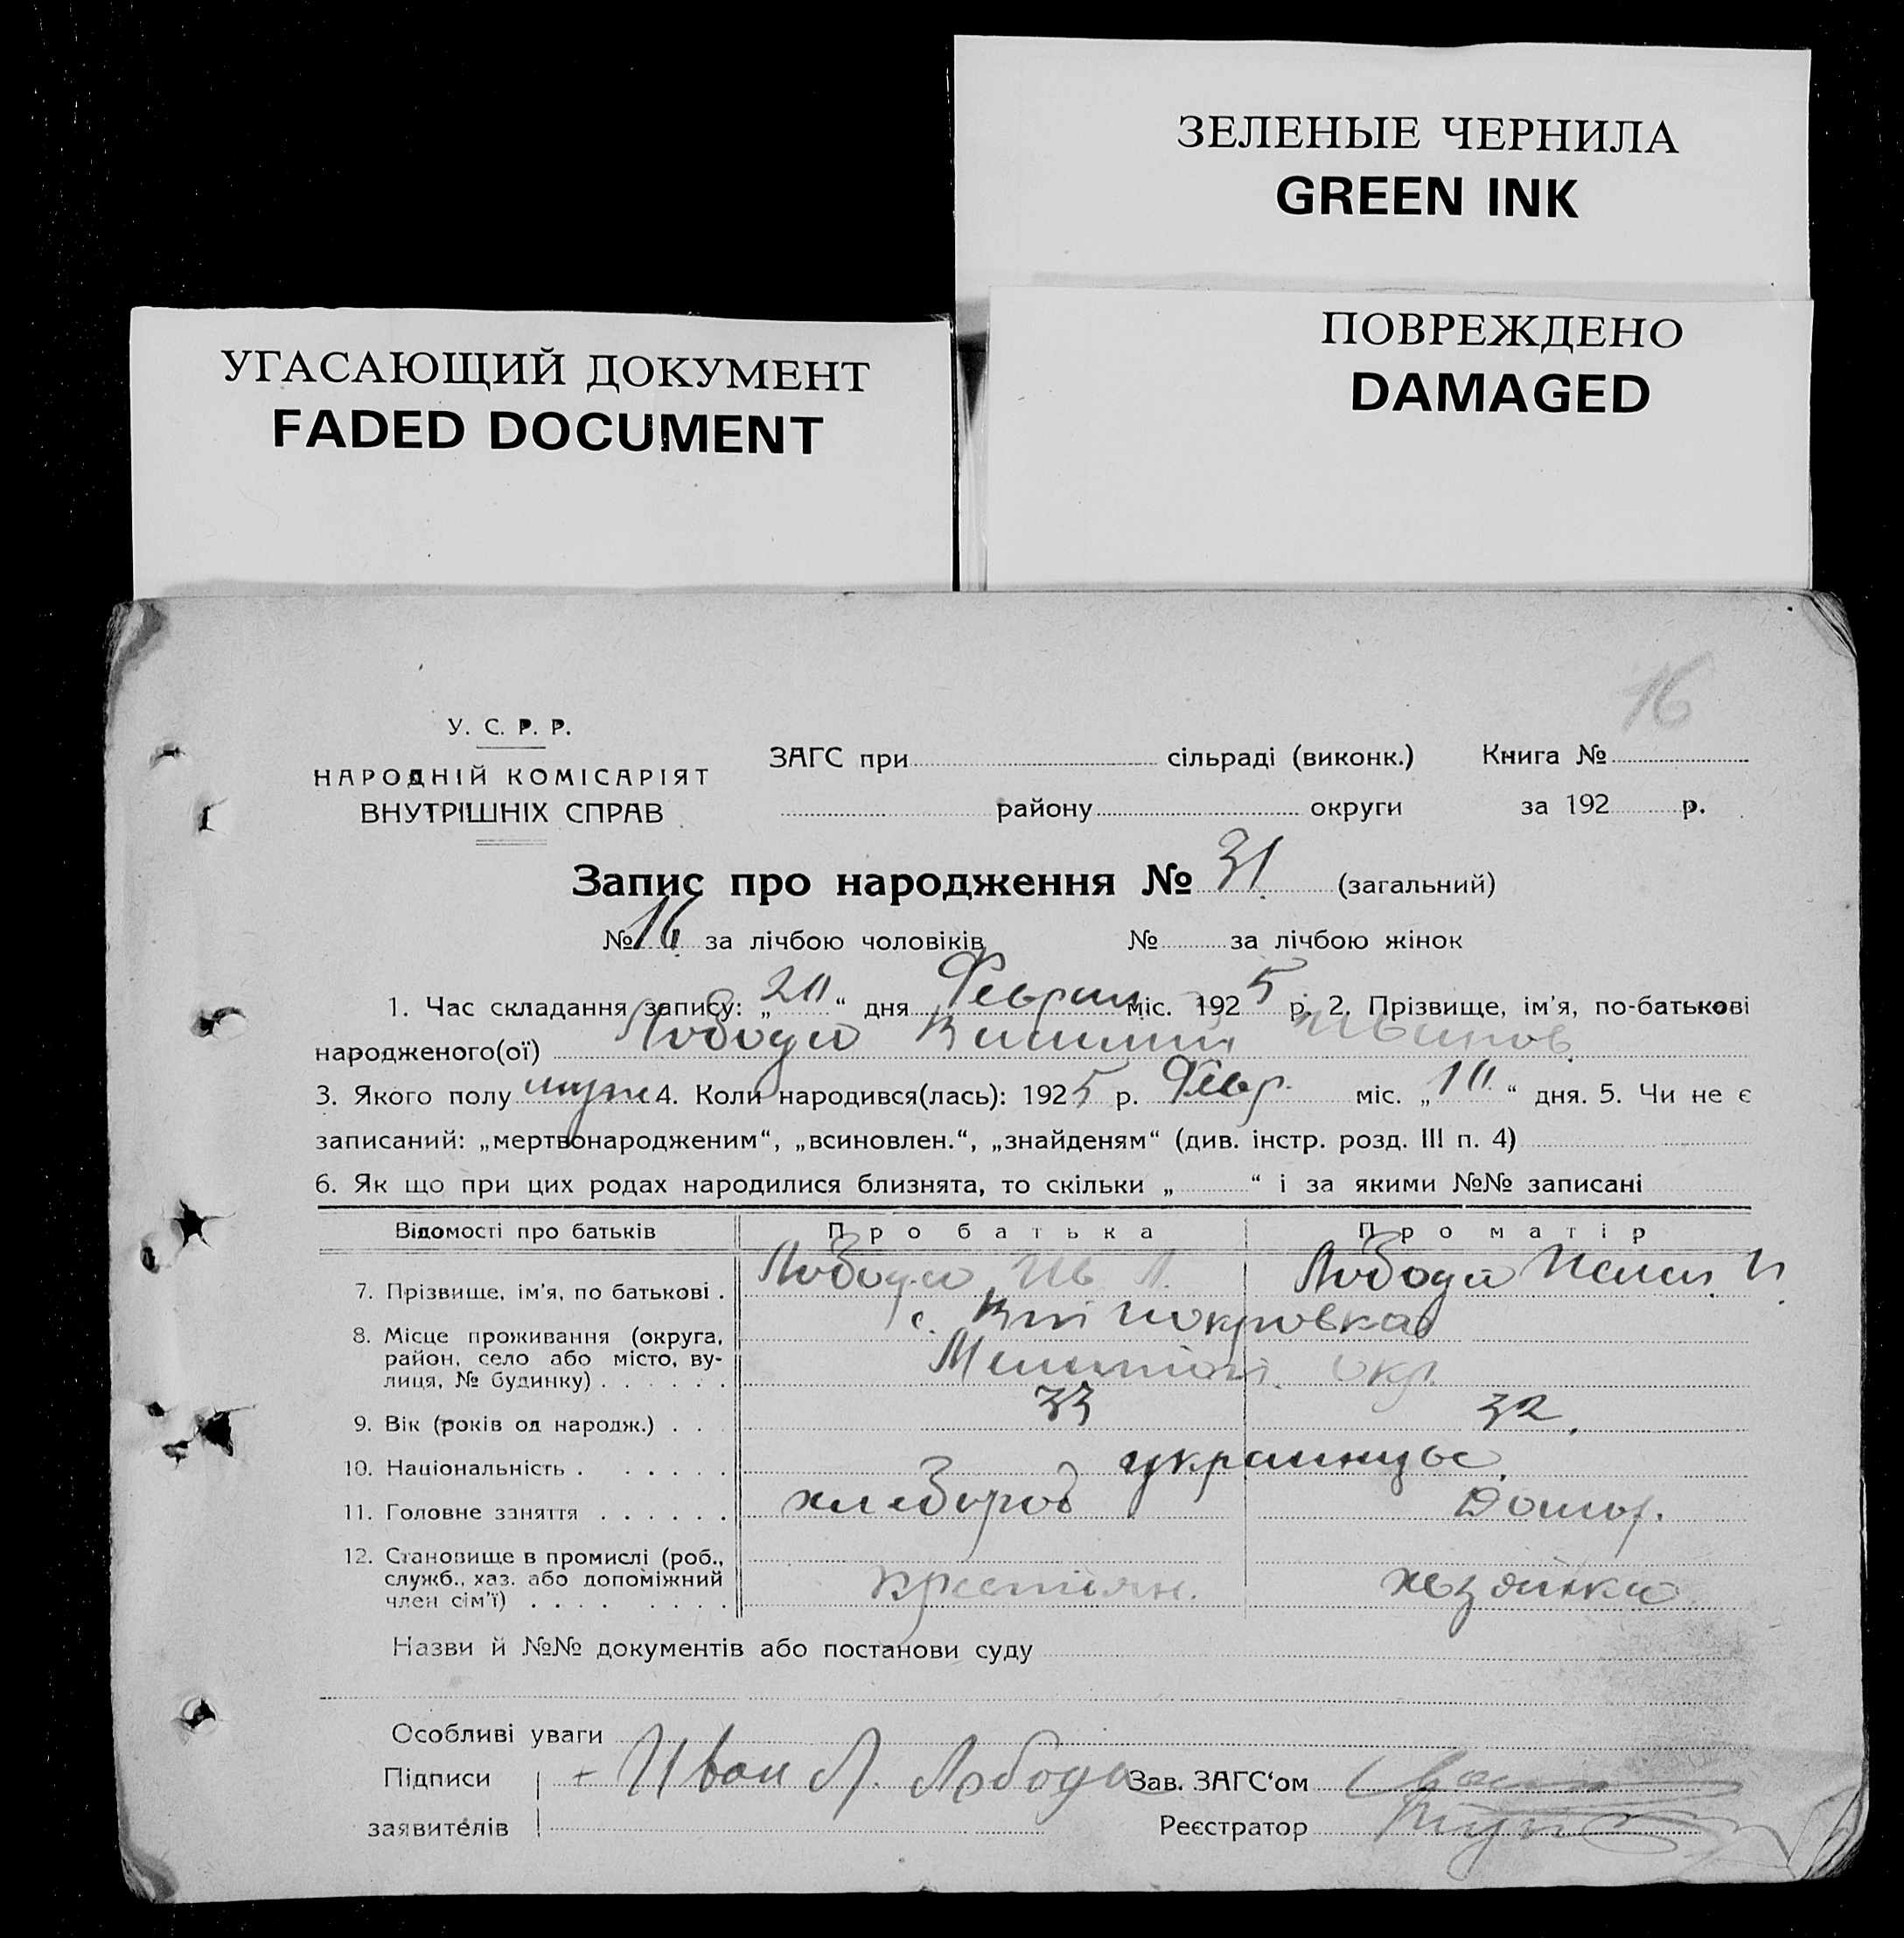 ЗЕЛЕНЫЕ ЧЕРНИЛА
GREEN INK
УГАСАЮЩИЙ ДОКУМЕНТ
FADED DOCUMENT
ПОВРЕЖДЕНО
DAMAGED
16
У. С. Р. Р.
НАРОДНІЙ КОМІСАРІЯТ
ВНУТРІШНІХ СПРАВ
ЗАГС при сільраді (виконк.) Книга №
району округи за 192 р.
Запис про народження № 31 (загальний)
№ 16 за лічбою чоловіків № за лічбою жінок
1. Час складання запису: „20“ дня Феврал міс. 1925 р. 2. Прізвище, ім'я, по-батькові
народженого(ої) Лобода Василий Иванов.
3. Якого полу муж 4. Коли народився(лась): 1925 р. Февр. міс. „10“ дня. 5. Чи не є
записаний: „мертвонародженим“, „всиновлен.“, „знайденям“ (див. інстр. розд. III п. 4)
6. Як що при цих родах народилися близнята, то скільки „ “ і за якими №№ записані
Відомості про батьків Про батька Про матір
7. Прізвище, ім'я, по батькові . Лобода Ив Л. Лобода И
8. Місце проживання (округа, район, село або місто, вулиця, № будинку) . . . . . . с. покровка
окр.
9. Вік (років од народж.) . . . 33 32.
10. Національність . . . . . . украинцы.
11. Головне заняття . . . . . . хлебороб Домог.
12. Становище в промислі (роб., служб., хаз. або допоміжний член сім'ї) . . . . . . . . крестьян. хозяйка
Назви й №№ документів або постанови суду
Особливі уваги
Підписи Иван Л. Лобода Зав. ЗАГС'ом
заявителів Реєстратор